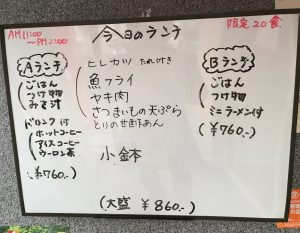 AM11:00
~PM2:00
今日のランチ
限定20食
Aランチ
ごはん
つけ物
みそ汁
ドリンク付
ホットコーヒー
アイスコーヒー
ウーロン茶
(¥760.-)
ヒレカツ たれ付き
魚フライ
ヤキ肉
さつまいもの天ぷら
とりの甘酢あん
小鉢
Bランチ
ごはん
つけ物
ミニラーメン付
(¥760.-)
(大盛 ¥860.-)